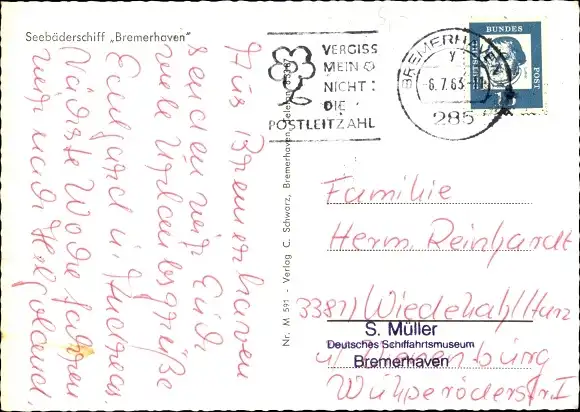 Seebäderschiff „Bremerhaven"
Aus Bremerhaven
senden wir Euch
viele Urlaubsgrüße
Eckhard u. Andreas
Nächste Woche fahren
wir nach Helgoland.
Nr. M 591 - Verlag C. Schwarz, Bremerhaven, Telefon
VERGISS
MEIN
NICHT:
DIE
POSTLEITZAHL
BREMERHAVEN
y
-6.7.63-
285
DEUTSCHE BUNDESPOST
Familie
Herm. Reinhardt
3381)
S. Müller
Deutsches Schiffahrtsmuseum
Bremerhaven